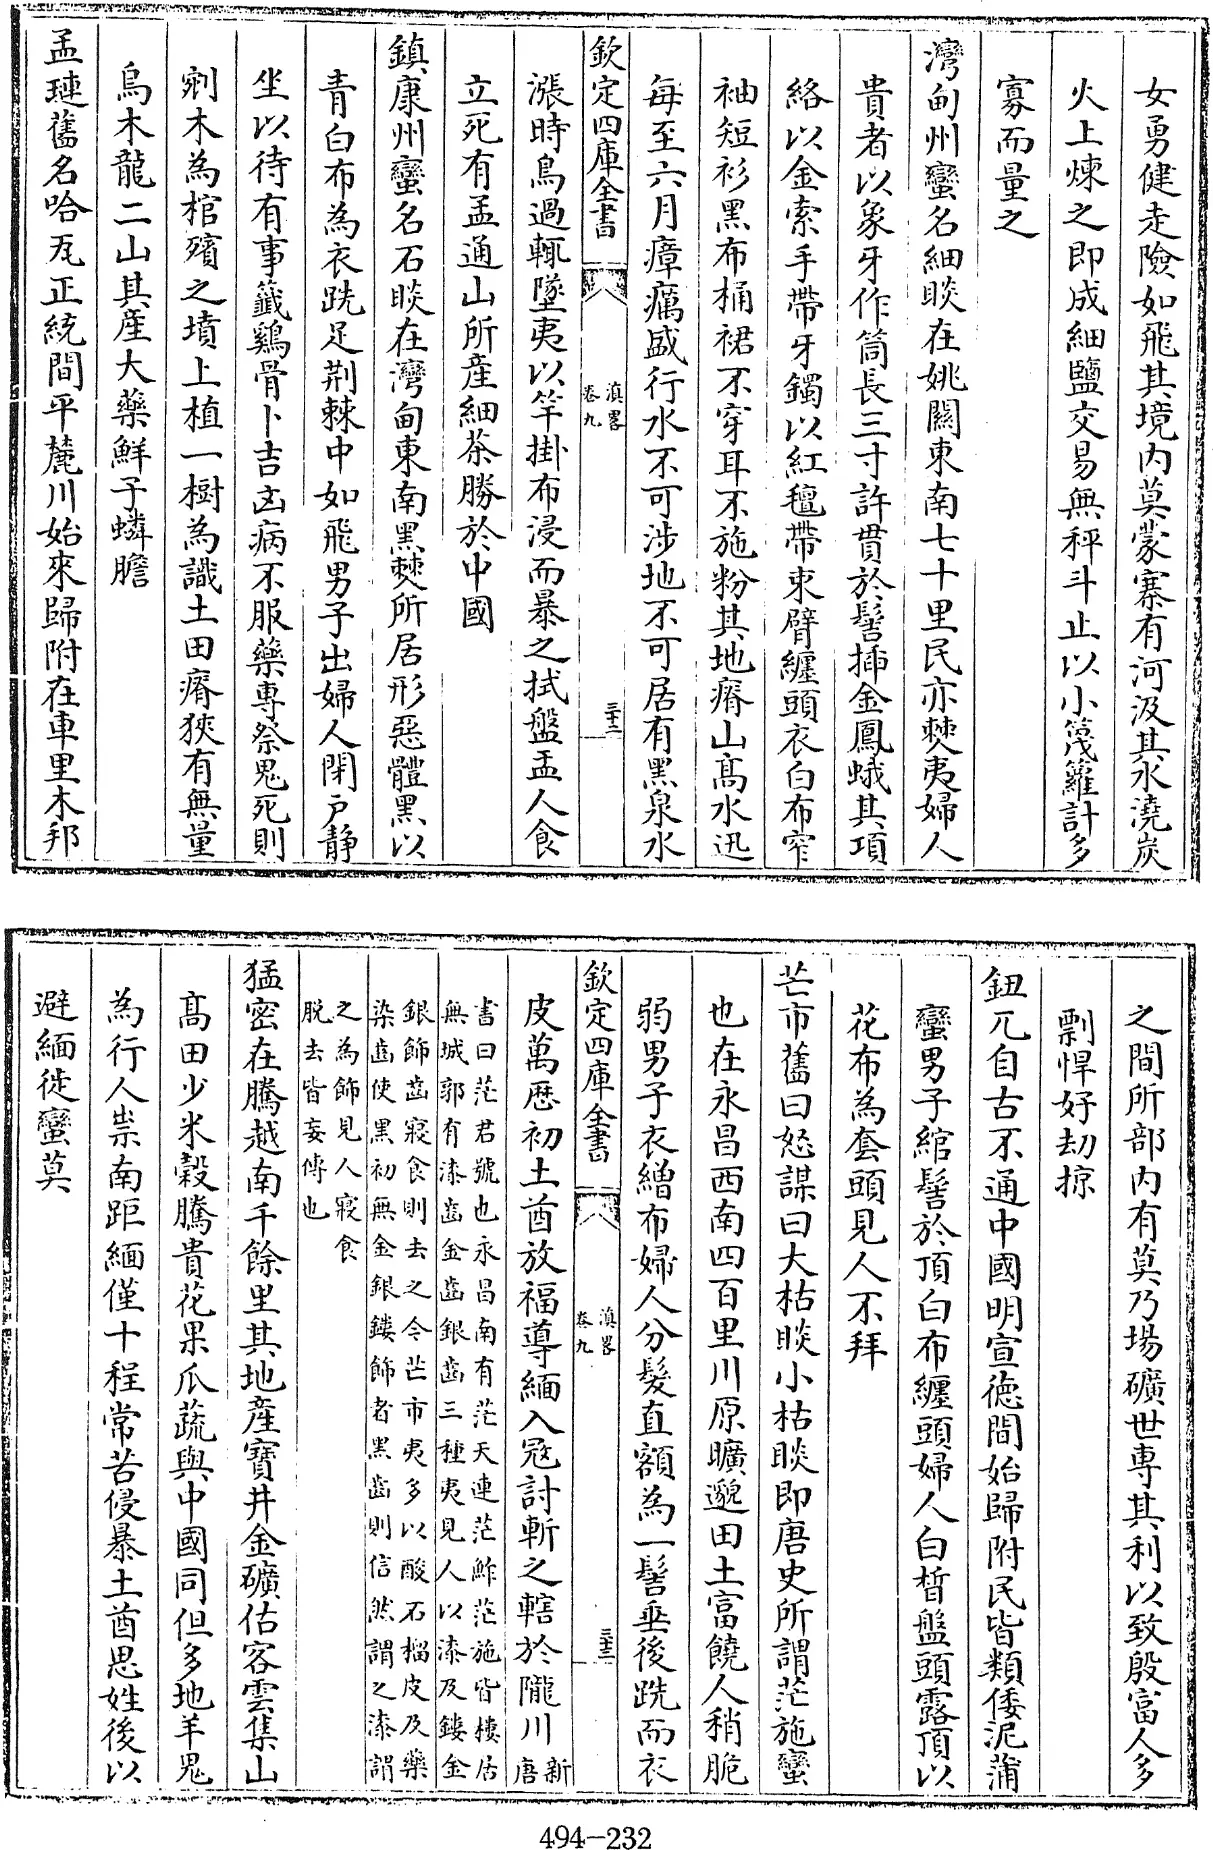 女勇健走險如飛其境内莫蒙寨有河汲其水澆炭
火上煉之即成細鹽交易無秤斗止以小篾籮計多
寡而量之
灣甸州蠻名細睒在姚關東南七十里民亦僰夷婦人
貴者以象牙作筒長三寸許貫於髻揷金鳳蛾其項
絡以金索手帶牙鐲以紅氊帶束臂纏頭衣白布窄
袖短衫黑布桶裙不穿耳不施粉其地瘠山髙水迅
每至六月瘴癘盛行水不可涉地不可居有黑泉水
欽定四庫全書
滇畧
卷九
三十二
漲時鳥過輒墜夷以竿掛布浸而暴之拭盤盂人食
立死有孟通山所産細茶勝於中國
鎮康州蠻名石睒在灣甸東南黑僰所居形惡體黑以
青白布為衣跣足荆棘中如飛男子出婦人閉戸静
坐以待有事籤鷄骨卜吉凶病不服藥專祭鬼死則
刳木為棺殯之墳上植一樹為識土田瘠狹有無量
烏木龍二山其産大藥鮮子蟒膽
孟璉舊名哈瓦正統間平麓川始來歸附在車里木邦
之間所部内有莫乃場礦世專其利以致殷富人多
剽悍好刼掠
鈕兀自古不通中國明宣徳間始歸附民皆類倭泥蒲
蠻男子綰髻於頂白布纏頭婦人白皙盤頭露頂以
花布為套頭見人不拜
芒市舊曰怒謀曰大枯睒小枯睒即唐史所謂茫施蠻
也在永昌西南四百里川原曠邈田土富饒人稍脆
弱男子衣繒布婦人分髮直額為一髻垂後跣而衣
欽定四庫全書
滇畧
卷九
三十三
皮萬厯初土酋放福導緬入冦討斬之轄於隴川新唐
書曰茫君號也永昌南有茫天連茫鮓茫施皆樓居
無城郭有漆齒金齒銀齒三種夷見人以漆及鏤金
銀飾齒寢食則去之今芒市夷多以酸石榴皮及藥
染齒使黑初無金銀鏤飾者黑齒則信然謂之漆謂
之為飾見人寢食
脱去皆妄傳也
猛密在騰越南千餘里其地産寳井金礦估客雲集山
髙田少米穀騰貴花果瓜蔬與中國同但多地羊鬼
為行人祟南距緬僅十程常苦侵暴土酋思姓後以
避緬徙蠻莫
494-232